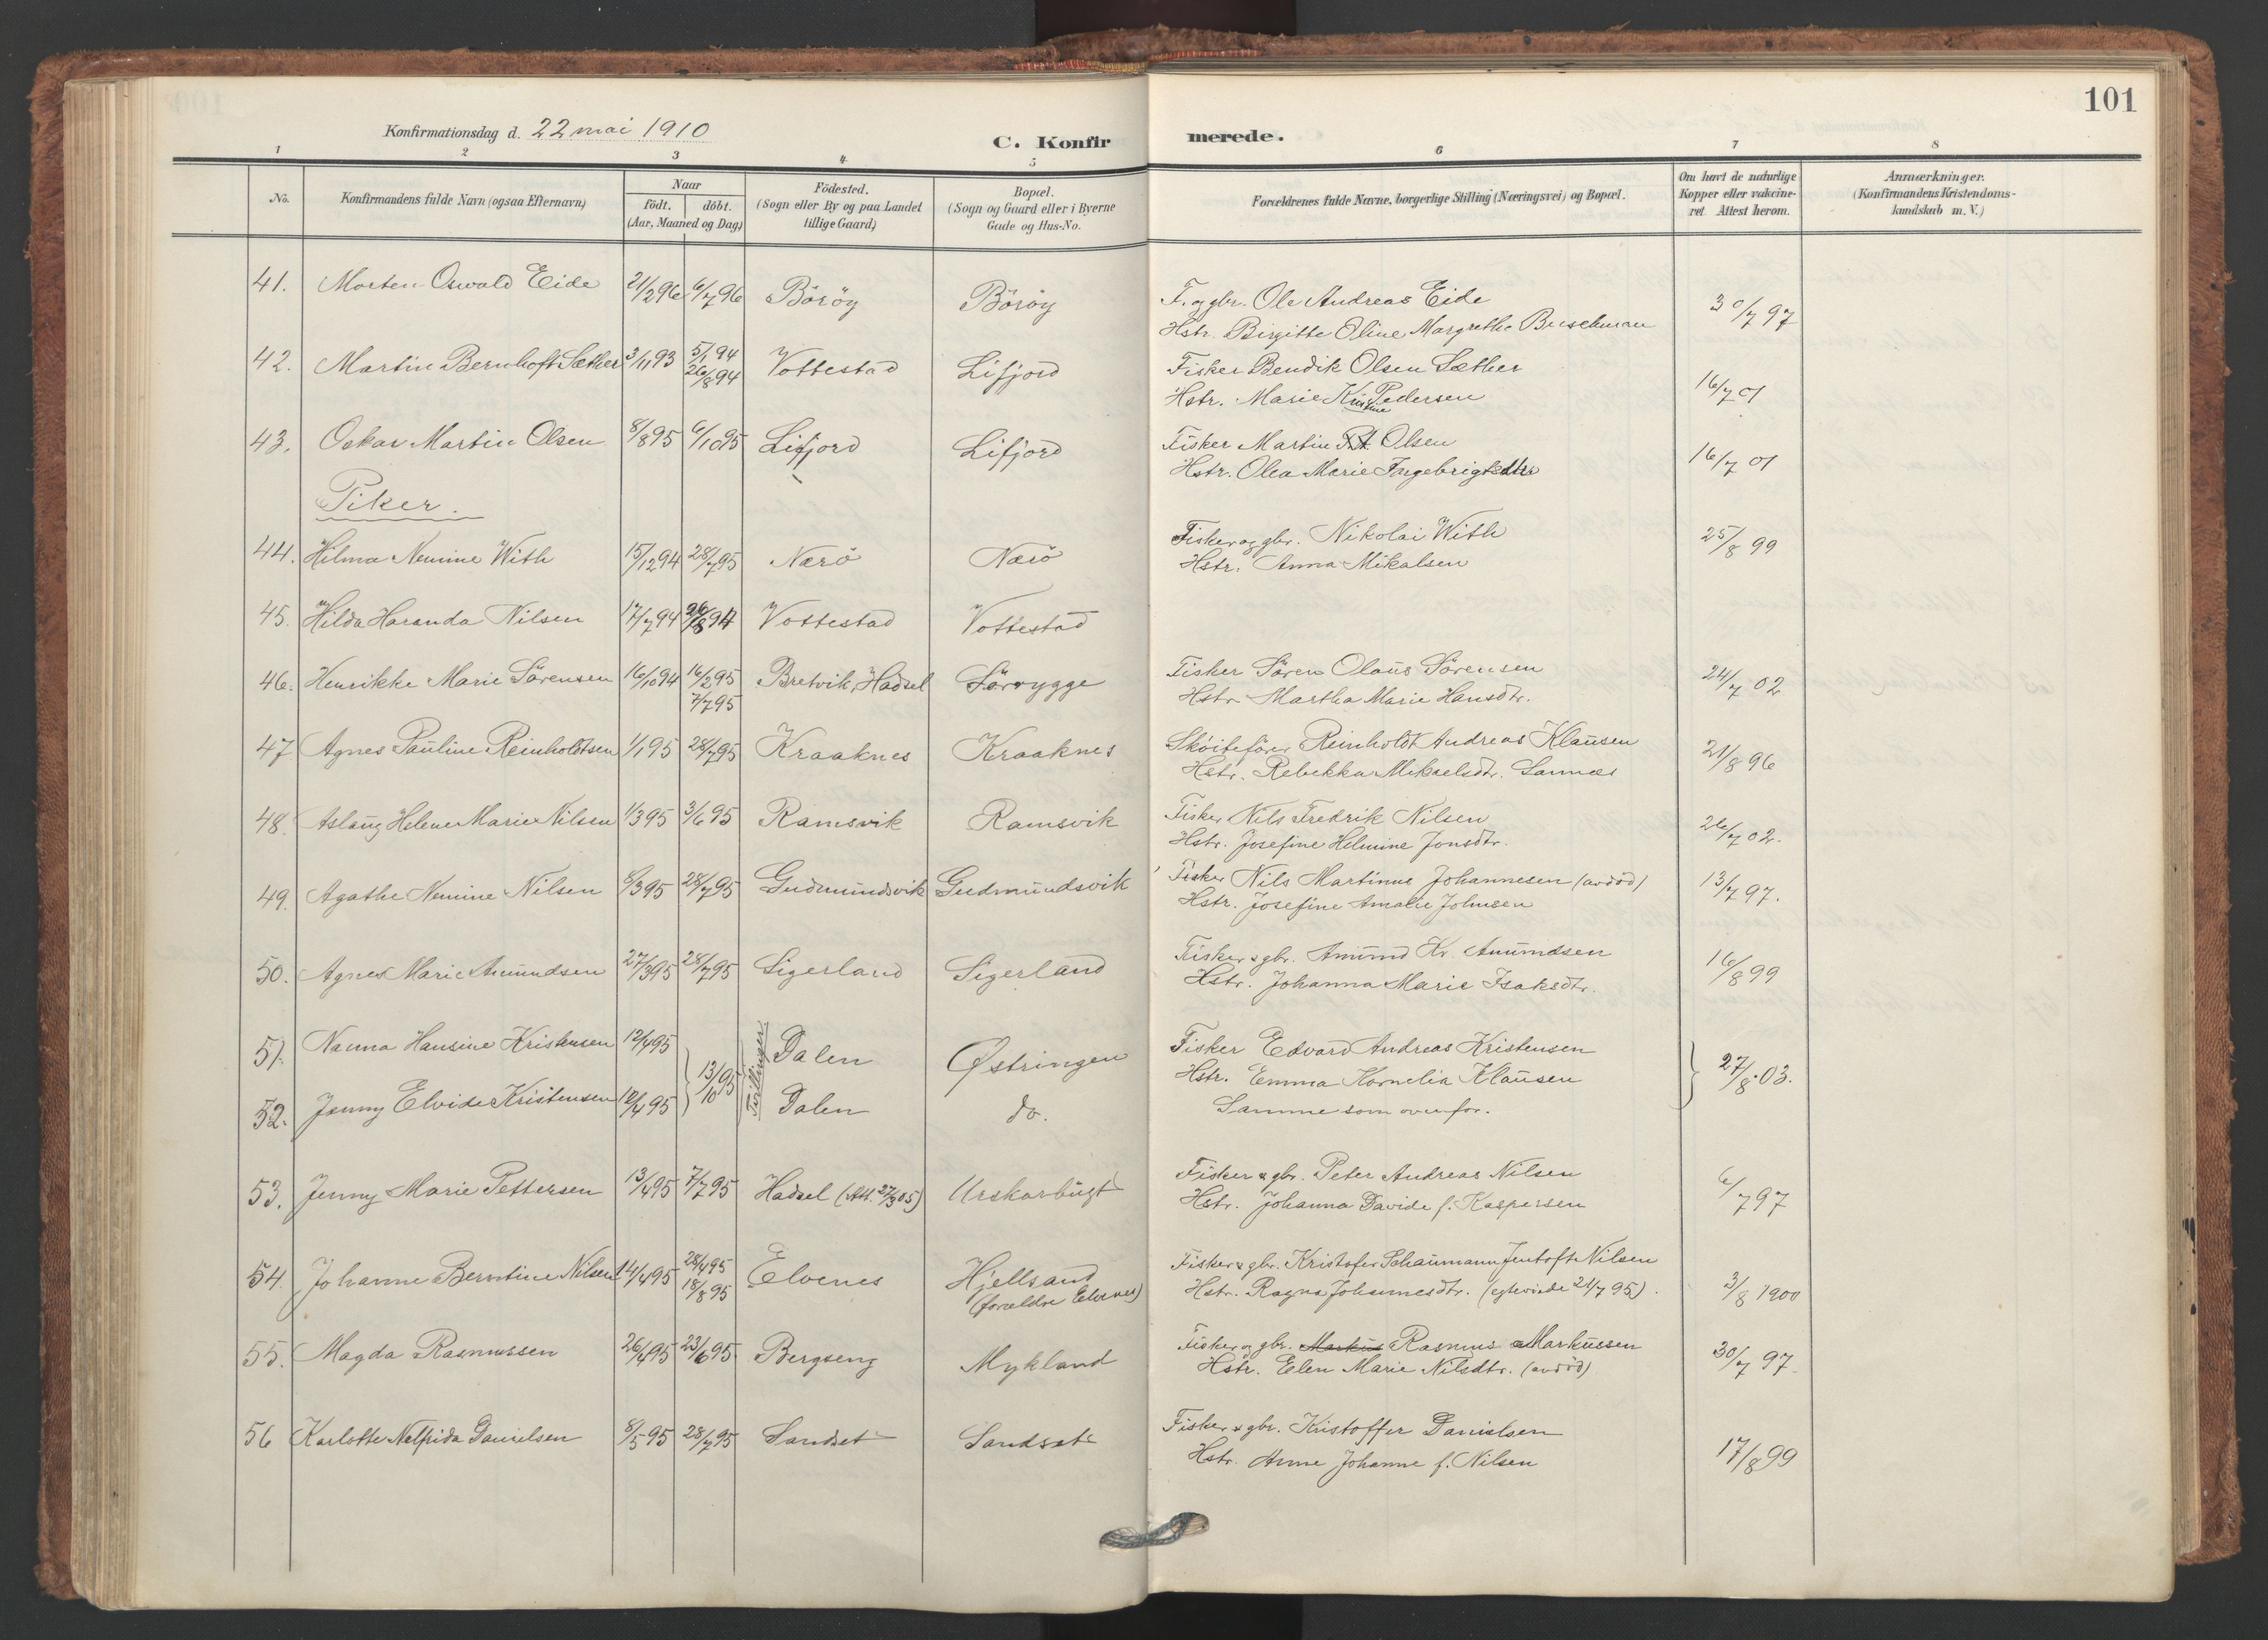 101
Konfirmationsdag d. 22 mai 1910
C. Konfirmerede.
1 2 3 4 5 6 7 8
No.
Konfirmandens fulde Navn (ogsaa Efternavn)
Naar
födt. döbt.
(Aar, Maaned og Dag)
Födested.
(Sogn eller By og paa Landet
tillige Gaard)
Bopæl.
(Sogn og Gaard eller i Byerne
Gade og Hus-No.
Forældrenes fulde Navne, borgerlige Stilling (Næringsvei) og Bopæl.
Om havt de naturlige
Kopper eller vakcine-
ret. Attest herom.
Anmærkninger.
(Konfirmandens Kristendoms-
kundskab m. V.)
41. Morten Oswald Eide 21/2 96 6/7 96 Böröy Böröy F. og gbr. Ole Andreas Eide 30/7 97
Hstr. Birgitte Oline Margrethe Buschman
42. Martin Bernhoft Sæther 3/11 93 5/1 94 Vottestad Lifjord Fisker Bendik Olsen Sæther 16/7 01
26/8 94
Hstr. Marie Kristine Pedersen
43. Oskar Martin Olsen 8/8 95 6/10 95 Lifjord Lifjord Fisker Martin Olsen 16/7 01
Hstr. Olea Marie Ingebrigtsdtr
Piker.
44. Hilma Nemine With 15/12 94 28/7 95 Nærö Nærö Fisker og gbr. Nikolai With 25/8 99
Hstr. Anna Mikalsen
45. Hilda Haranda Nilsen 17/7 94 26/8 94 Vottestad Vottestad
46. Henrikke Marie Sörensen 16/10 94 16/2 95 Bretvik, Hadsel Sörrygge Fisker Sören Olaus Sörensen 24/7 02
7/7 95
Hstr. Martha Marie Hansdtr.
47 Agnes Pauline Reinholdtsen 1/1 95 28/7 95 Kraaknes Kraaknes Sköitefører Reinholdt Andreas Klausen 21/8 96
Hstr. Rebekka Mikaelsdtr. Sannes
48. Aslaug Helene Marie Nilsen 1/3 95 3/6 95 Ramsvik Ramsvik Fisker Nils Fredrik Nilsen 26/7 02.
Hstr. Josefine Helmine Jonsdtr.
49. Agathe Nemine Nilsen 8/3 95 28/7 95 Gudmundsvik Gudmundsvik Fisker Nils Martinus Johannesen (avdöd) 13/7 97.
Hstr. Josefine Amalie Johnsen
50. Agnes Marie Amundsen 27/3 95 28/7 95 Sigerland Sigerland Fisker & gbr. Amund Kr. Amundsen 16/8 99
Hstr. Johanna Marie Isaksdtr.
51. Nanna Hansine Kristensen 12/4 95 13/10 95 Tvillinger Dalen Østringen Fisker Edvard Andreas Kristensen 27/8 03.
Hstr. Emma Kornelia Klausen
52. Jenny Elvide Kristensen 12/4 95 Dalen do. Samme som ovenfor.
53. Jenny Marie Pettersen 13/4 95 7/7 95 Hadsel (Att. 27/3 05) Urskarbugt Fisker & gbr. Peter Andreas Nilsen 6/7 97
Hstr. Johanna Davide f. Kaspersen
54. Johanne Berntine Nilsen 14/4 95 28/4 95 Elvenes Hjellsand Fisker & gbr. Kristofer Schaumann Jentoft Nilsen 3/8 1900
18/8 95 (forældre Elvenes)
Hstr. Ragna Johannesdtr. (egteviede 21/7 95).
55. Magda Rasmussen 26/4 95 23/6 95 Bergseng Mykland Fisker og gbr. Markus Rasmus Markussen 30/7 97.
Hstr. Elen Marie Nilsdtr. (avdöd)
56 Karlotte Nelfrida Danielsen 8/5 95 28/7 95 Sandset Sandset Fisker & gbr. Kristoffer Danielsen 17/8 99
Hstr. Anne Johanne f. Nilsen